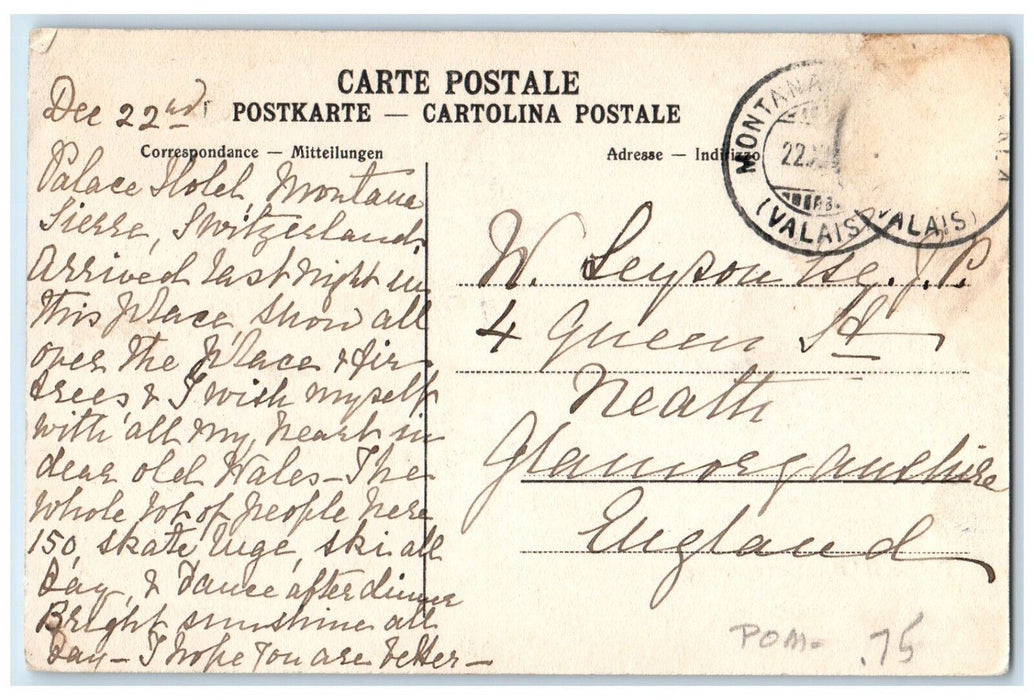 CARTE POSTALE
POSTKARTE — CARTOLINA POSTALE
Correspondance — Mitteilungen
Adresse — Indirizzo
MONTANA
22.X
(VALAIS)
VALAIS)
Dec 22nd
Palace Hotel, Montana
Sierre, Switzerland
Arrived last night in
this place, snow all
over the place & fir
trees & I wish myself
with all my heart in
dear old Wales – The
whole lot of people here
150, skate, luge, ski all
day, & dance after dinner
Bright sunshine all
day – I hope you are better –
W. Leyson Esq. J.P.
4 Queen St
Neath
Glamorganshire
England
POM– .75